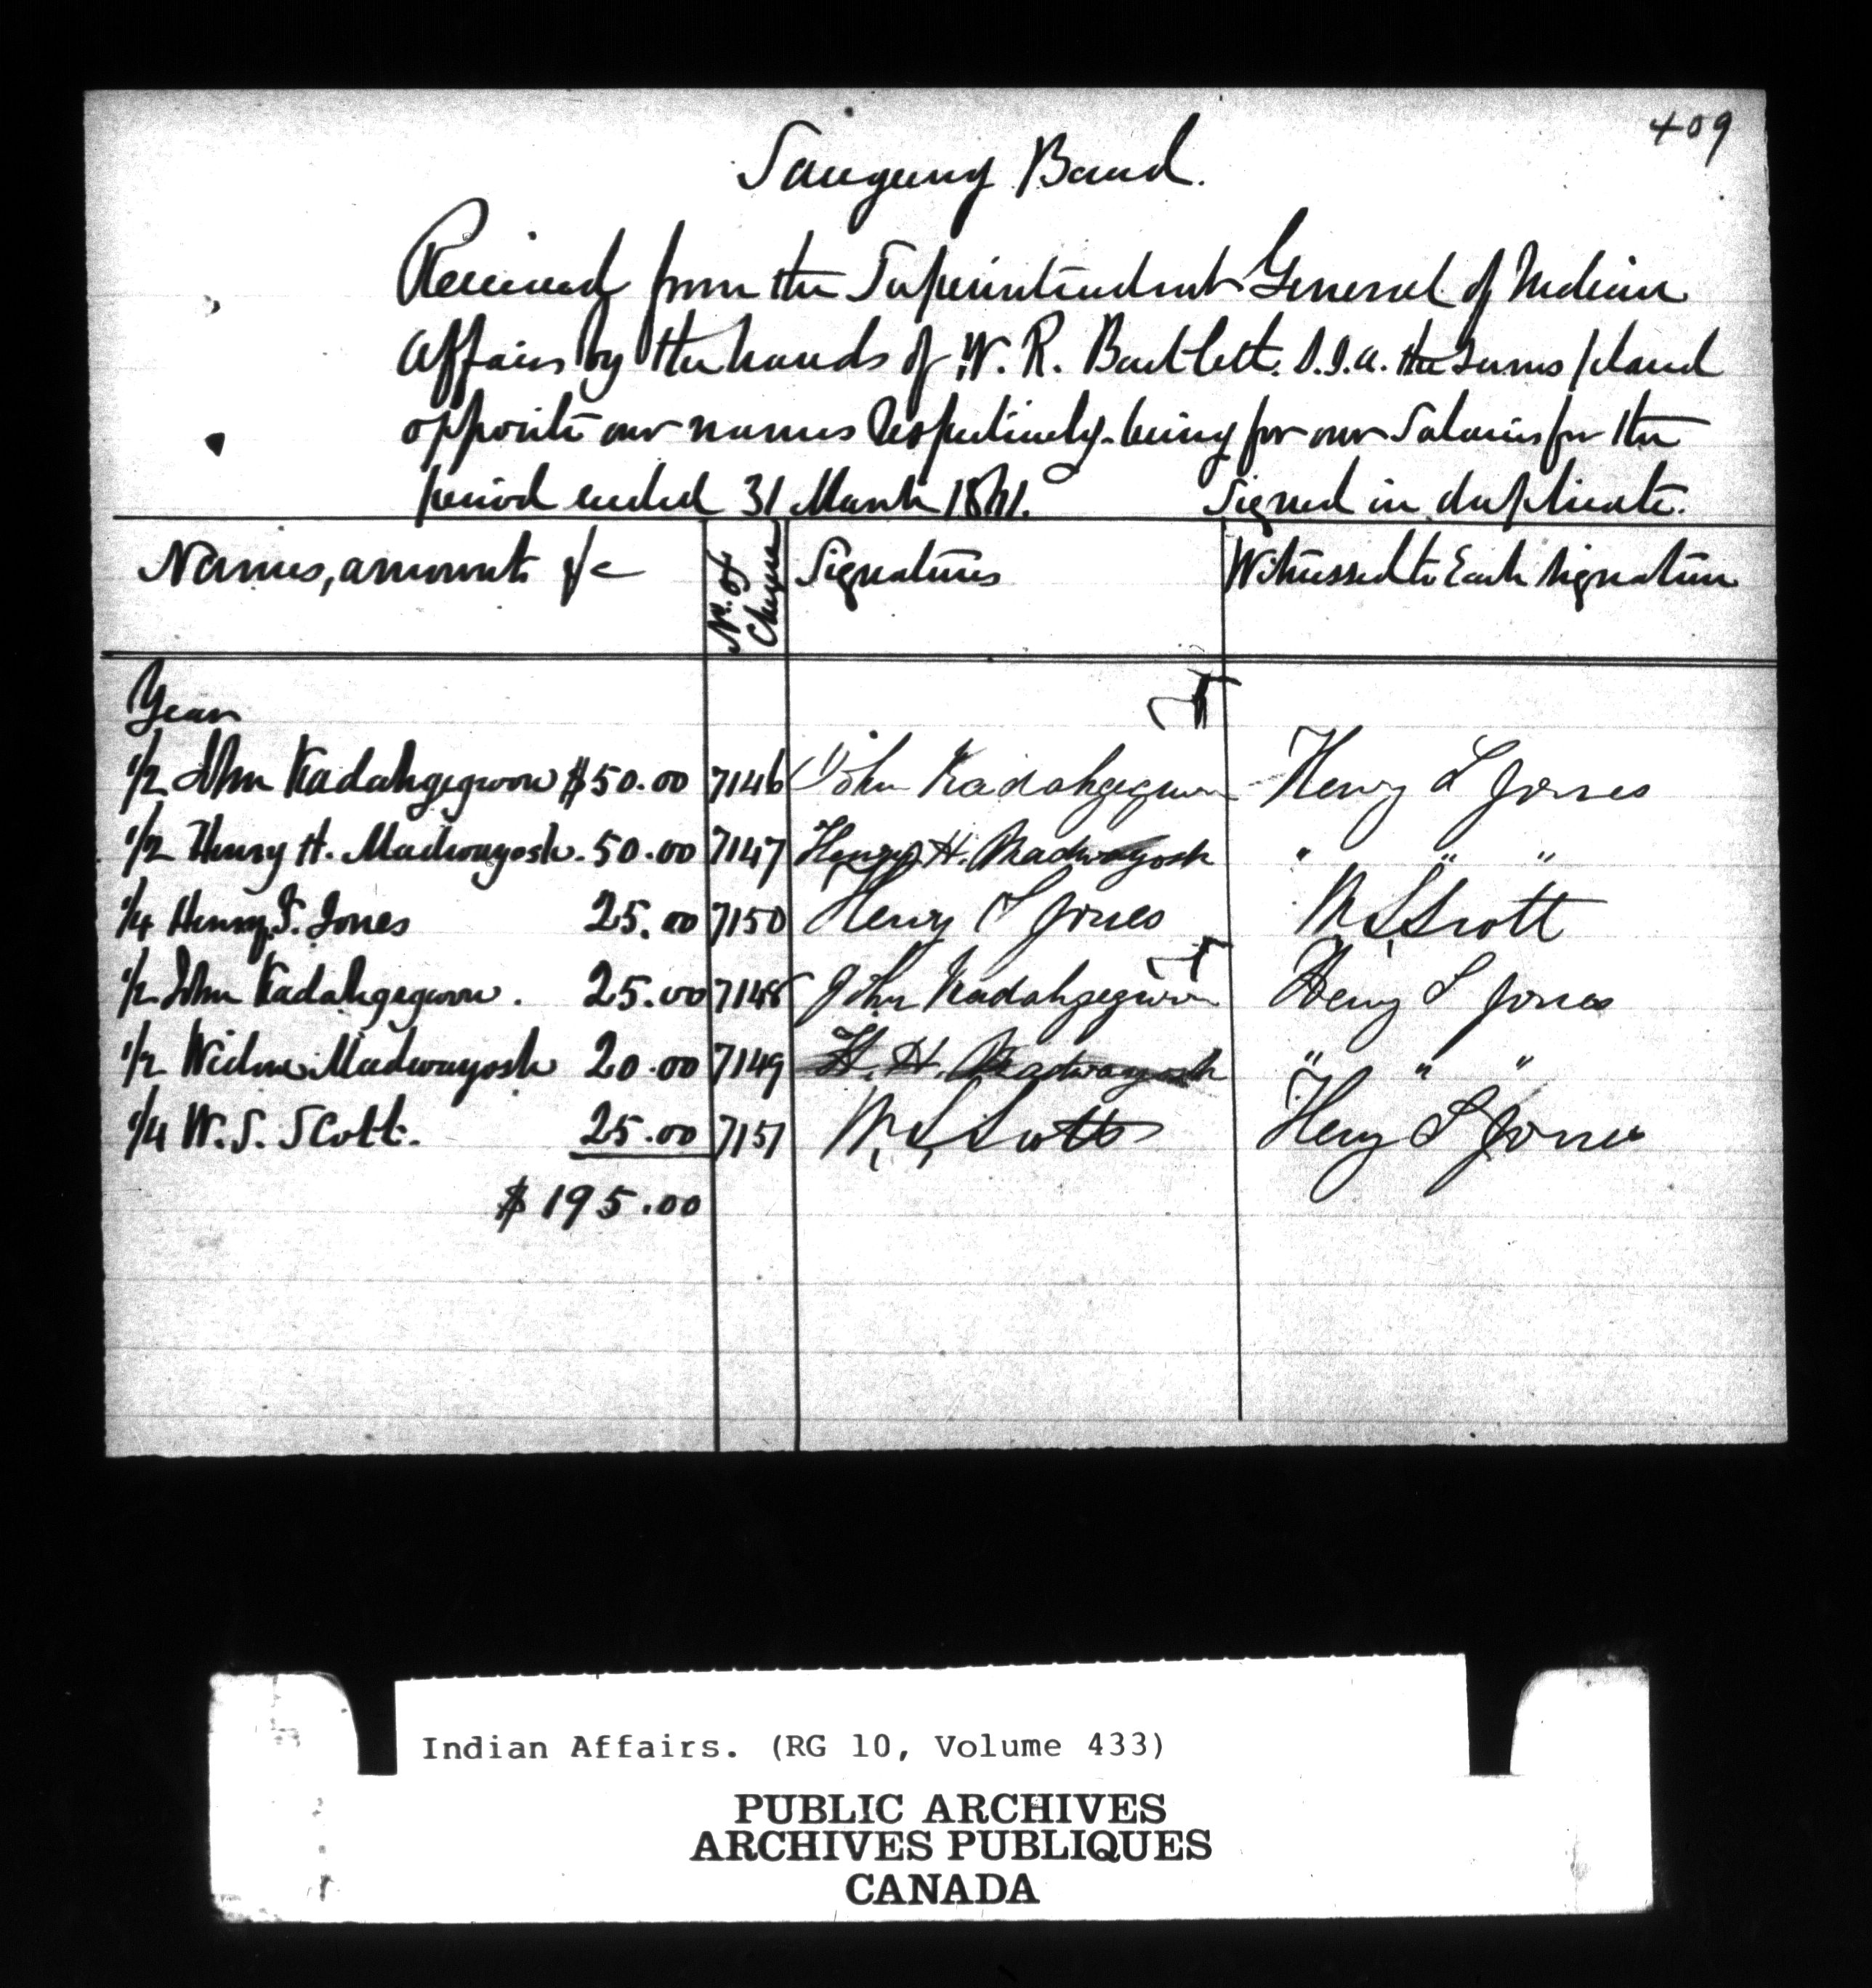 409
Saugeeng Band.
Received from the Superintendent General of Indian
Affairs by the hands of W. R. Bartlett. S.I.A. the Sums placed
opposite our names Respectively being for our Salaries for the
period ended 31 March 1871. Signed in duplicate.
Names, amounts &c No. of Cheque Signatures Witnessed to Each Signature
Year
1/2 John Kadahgegwon $50.00 7146 John Kadahgegwon Henry L Jones
1/2 Henry H. Madwayosh. 50.00 7147 Henry H. Madwayosh " " "
1/4 Henry L. Jones 25.00 7150 Henry L Jones W. S. Scott
1/2 John Kadahgegwon. 25.00 7148 John Kadahgegwon Henry L Jones
1/2 Widow Madwayosh 20.00 7149 H. H. Madwayosh " " "
1/4 W. S. Scott. 25.00 7151 W. S. Scott Henry L Jones
$195.00
Indian Affairs. (RG 10, Volume 433)
PUBLIC ARCHIVES
ARCHIVES PUBLIQUES
CANADA